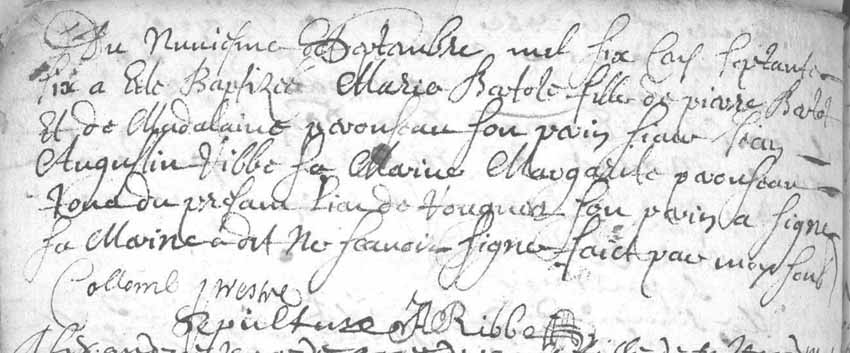 Du Nuniesme de Septambre mil six Cens septante
six a Este Baptizee Marie Bartole fille de pierre Bartol
Et de Madalaine provouseau son parin sieur Jean
Augustin Ribbe sa Marine Margarite provouseau
tous du presant Lieu de son parin a signe
sa Marine a dit Ne scavoir signer faict par moy soub
Collomb prestre
Sepulture A Ribbe